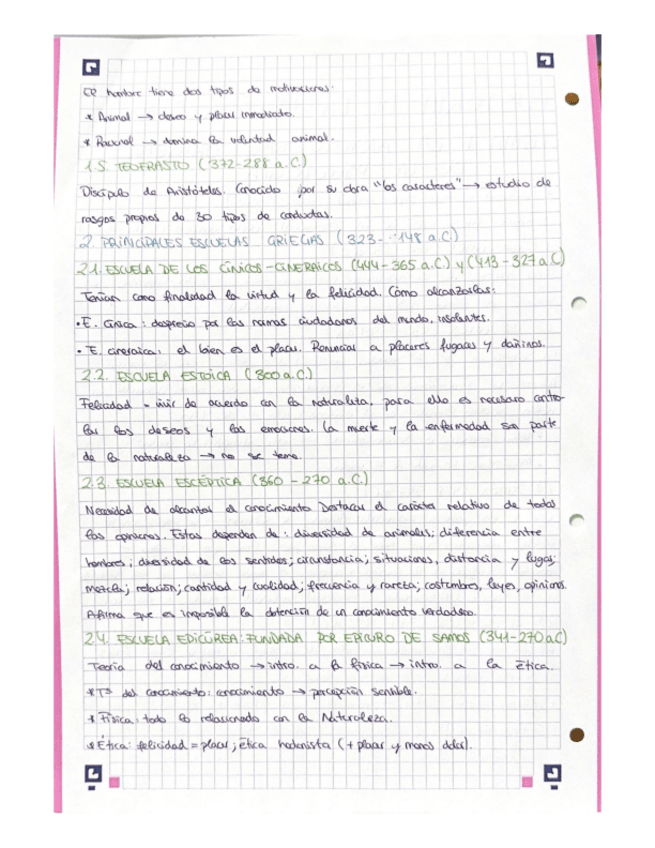 El hombre tiene dos tipos de motivaciones:
* Animal → deseo y placer inmediato.
* Racional → domina la voluntad animal.
1.5. TEOFRASTO (372-288 a.C)
Discípulo de Aristóteles. Conocido por su obra "los caracteres" → estudio de
rasgos propios de 30 tipos de conductas.
2. PRINCIPALES ESCUELAS GRIEGAS (323- -148 a.C)
2.1. ESCUELA DE LOS CÍNICOS-CINERAICOS (444-365 a.C) y (413-327 a.C)
Tenían como finalidad la virtud y la felicidad. Cómo alcanzarlas:
• E. Cínica: desprecio por las normas ciudadanos del mundo, insolentes.
• E. cirenaica: el bien es el placer. Renuncias a placeres fugaces y dañinos.
2.2. ESCUELA ESTOICA (300 a.C.)
Felicidad = vivir de acuerdo con la naturaleza, para ello es necesario contro-
lar los deseos y las emociones. La muerte y la enfermedad son parte
de la naturaleza → no se teme.
2.3. ESCUELA ESCÉPTICA (360-270 a.C.)
Necesidad de alcanzar el conocimiento Destacas el carácter relativo de todas
las opiniones. Estas dependen de: diversidad de animales; diferencia entre
hombres; diversidad de los sentidos; circunstancia; situaciones, distancia y lugar;
mezcla; relación; cantidad y cualidad; frecuencia y rareza; costumbres, leyes, opiniones.
Afirma que es imposible la detención de un conocimiento verdadero.
2.4. ESCUELA EDICÚREA: FUNDADA POR EPICURO DE SAMOS (341-270 a.C)
Teoría del conocimiento → intro. a la física → intro. a la ética.
* Tª del conocimiento: conocimiento → percepción sensible.
* Física: todo lo relacionado con la Naturaleza.
* Ética: felicidad = placer; ética hedonista (+ placer y menos dolor).